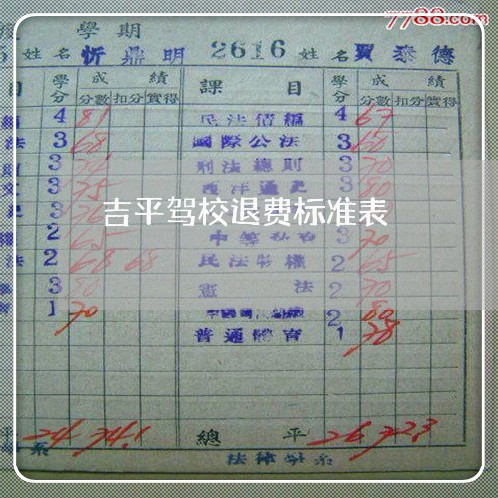 7788.com
學期
姓名 忻鼎明 2616 姓名 賈泰德
目 學分 成績 分數 扣分 實得 課目 學分 成績 分數 扣分 實得
4 81 民法債編 4 67
法 3 68 國際公法 3 60
3 刑法總則 3 70
3 75 西洋通史 3 80
吉平驾校退费标准表
2 65 3 70
法 2 68 68 民法物權 2 65
3 80 憲法 2 70
1 70 2 80
普通體育 1 78
平 24 74.1 總平 26 72.3
系 法律學系